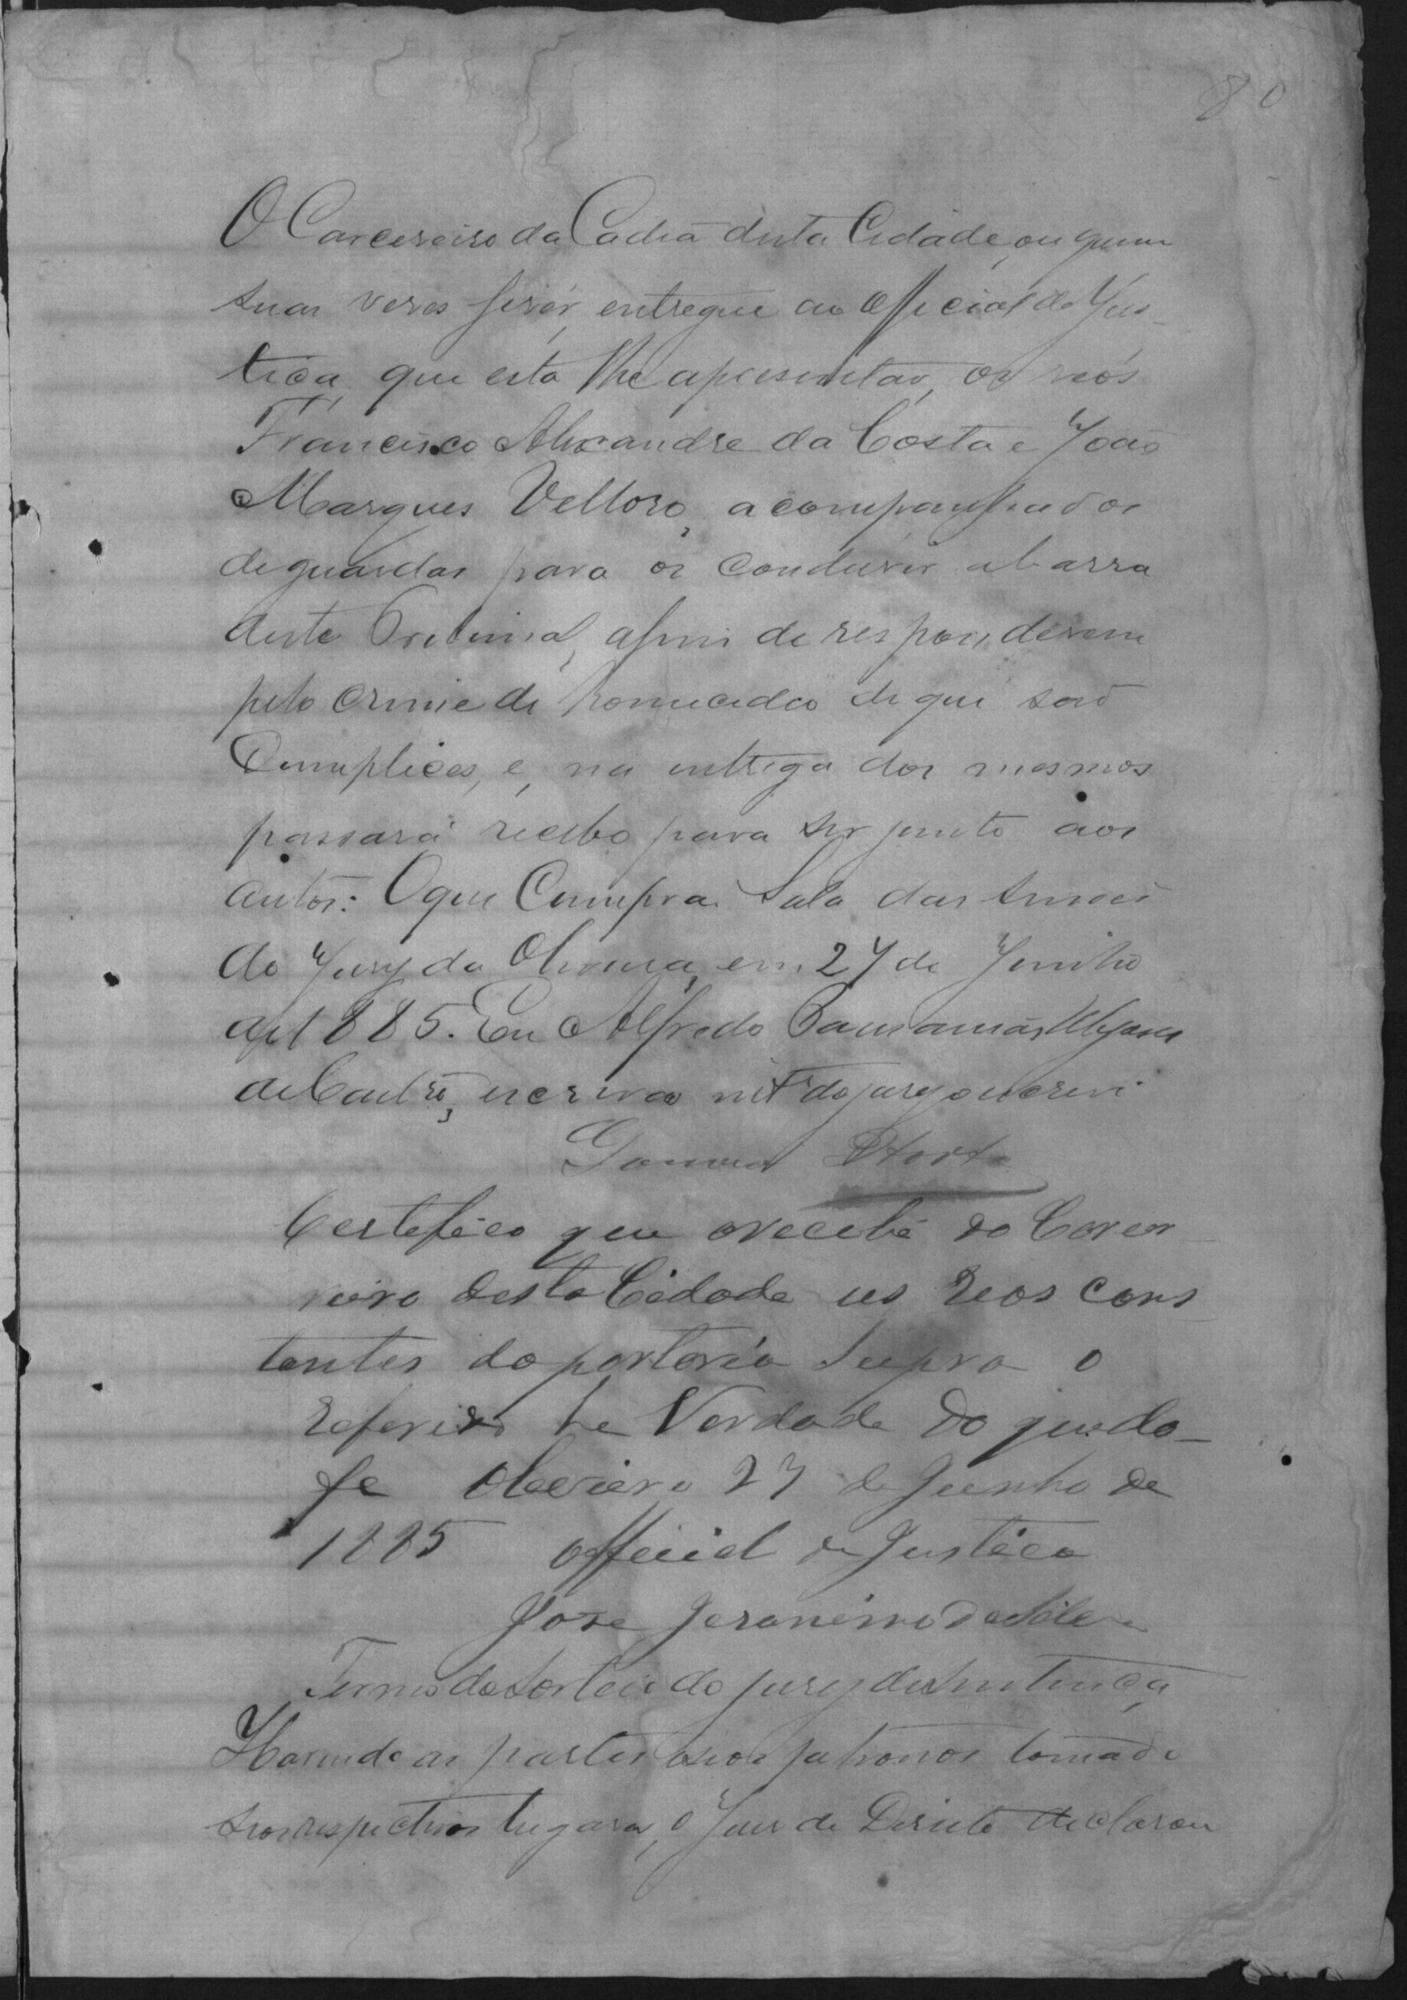 80
O Carcereiro da Cadea desta Cidade, ou quem
suas vezes fizer, entregue ao official de Jus-
tiça, que esta lhe apresentar, os reós
Francisco Alexandre da Costa e João
Marques Velloso, acompanhados
de guardas para os conduzir a barra
deste Tribunal, afim de responderem
pelo crime de homicidio de que saõ
Cumplices, e, na entrega dos mesmos
passará recibo para ser junto aos
autos: O que Cumpra. Sala das sessoes
do Jury da Oliveira, em 27 de Junho
de 1885. Eu Alfredo
de Castro, escrivaõ intº do jury o escrevi
Certefico que o recebi do Carcer
reiro desta Cidade us Reos cons
tantes da portaria supra o
referido he Verdade do que do-
fe Oleveira 27 de Junho de
1885 official de Justica
Jose Jeronimo da Silva
Termo do sorteio do jury de sentença
Havendo as partes seos patronos tomado
seos respectivos lugares, o Juiz de Direito declarou